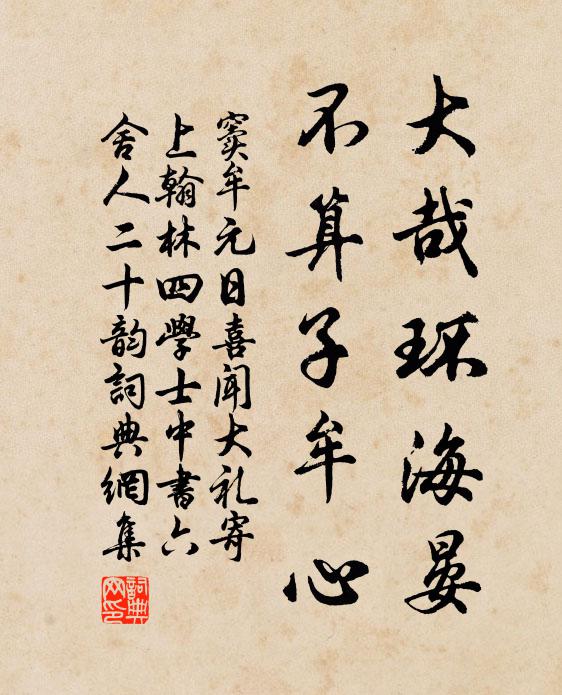 大哉环海晏
不算子牟心
窦牟元日喜闻大礼寄
上翰林四學士中書六
舍人二十韵詞典網集
詞典
网印